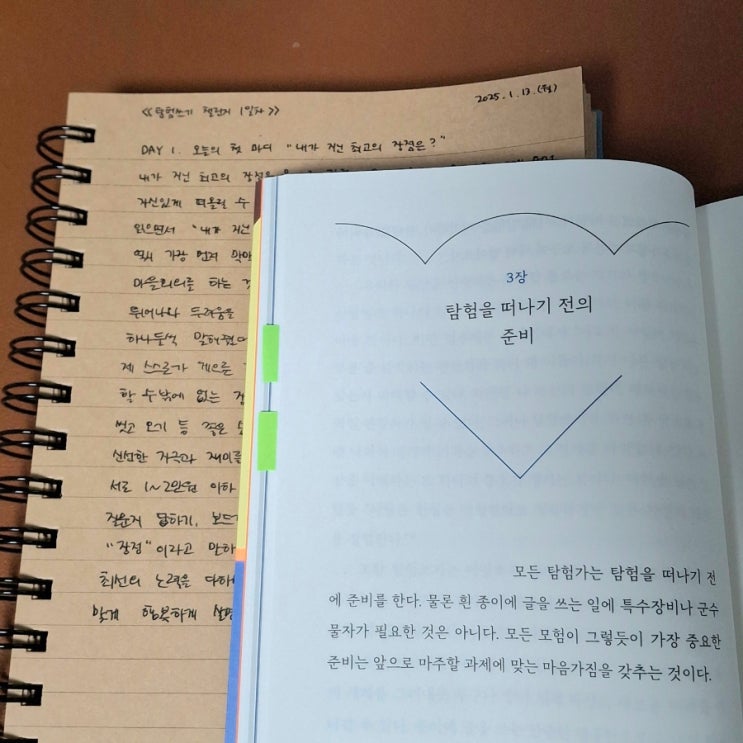 <<탐험쓰기 챌린지 1일차>>
2025. 1. 13. (월)
DAY 1. 오늘의 첫 마디 "내가 지닌 최고의 장점은?"
내가 지닌 최고의 장점은
자신있게 떠올릴 수
읽으면서 "내가 지닌
역시 가장 먼저
마을버스를 타는
뛰어나와 두려움을
하나둘씩
제 스스로가 게으른
할 수밖에 없는
씻고 오기 등 젊은
신선한 자극과 재미를
서로 1~2만원 이하
말하기, 보드
"장점"이라고 말하
최선의 노력을 다하
맞게 행복하게
3장
탐험을 떠나기 전의
준비
모든 탐험가는 탐험을 떠나기 전
에 준비를 한다. 물론 흰 종이에 글을 쓰는 일에 특수장비나 군수
물자가 필요한 것은 아니다. 모든 모험이 그렇듯이 가장 중요한
준비는 앞으로 마주할 과제에 맞는 마음가짐을 갖추는 것이다.